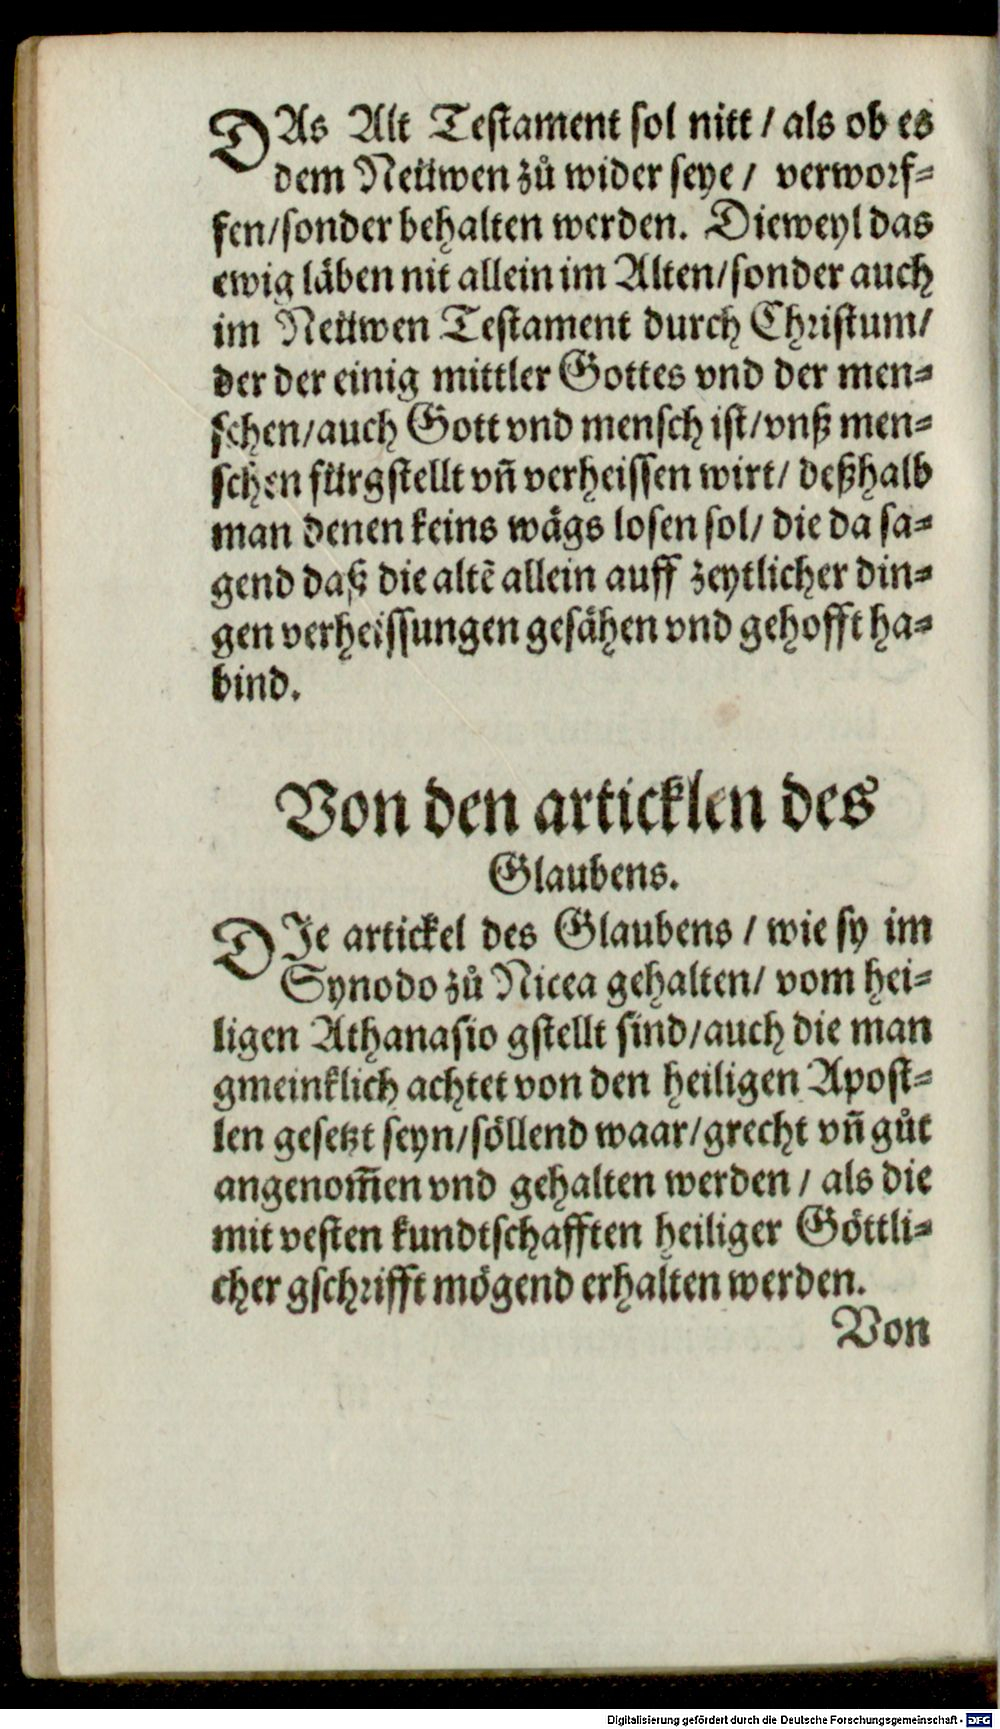 DAs Alt Testament sol nitt / als ob es
dem Neüwen zů wider seye / verworf⸗
fen/sonder behalten werden. Dieweyl das
ewig läben nit allein im Alten/sonder auch
im Neüwen Testament durch Christum/
der der einig mittler Gottes vnd der men⸗
schen/auch Gott vnd mensch ist/vnß men⸗
schen fürgstellt vñ verheissen wirt/ deßhalb
man denen keins wägs losen sol/ die da sa⸗
gend daß die altẽ allein auff zeytlicher din⸗
gen verheissungen gesähen vnd gehofft ha⸗
bind.
Von den articklen des
Glaubens.
DIe artickel des Glaubens / wie sy im
Synodo zů Nicea gehalten/ vom hei⸗
ligen Athanasio gstellt sind/auch die man
gmeinklich achtet von den heiligen Apost⸗
len gesetzt seyn/söllend waar/grecht vñ gůt
angenom̃en vnd gehalten werden / als die
mit vesten kundtschafften heiliger Göttli⸗
cher gschrifft mögend erhalten werden.
Von
Digitalisierung gefördert durch die Deutsche Forschungsgemeinschaft - DFG